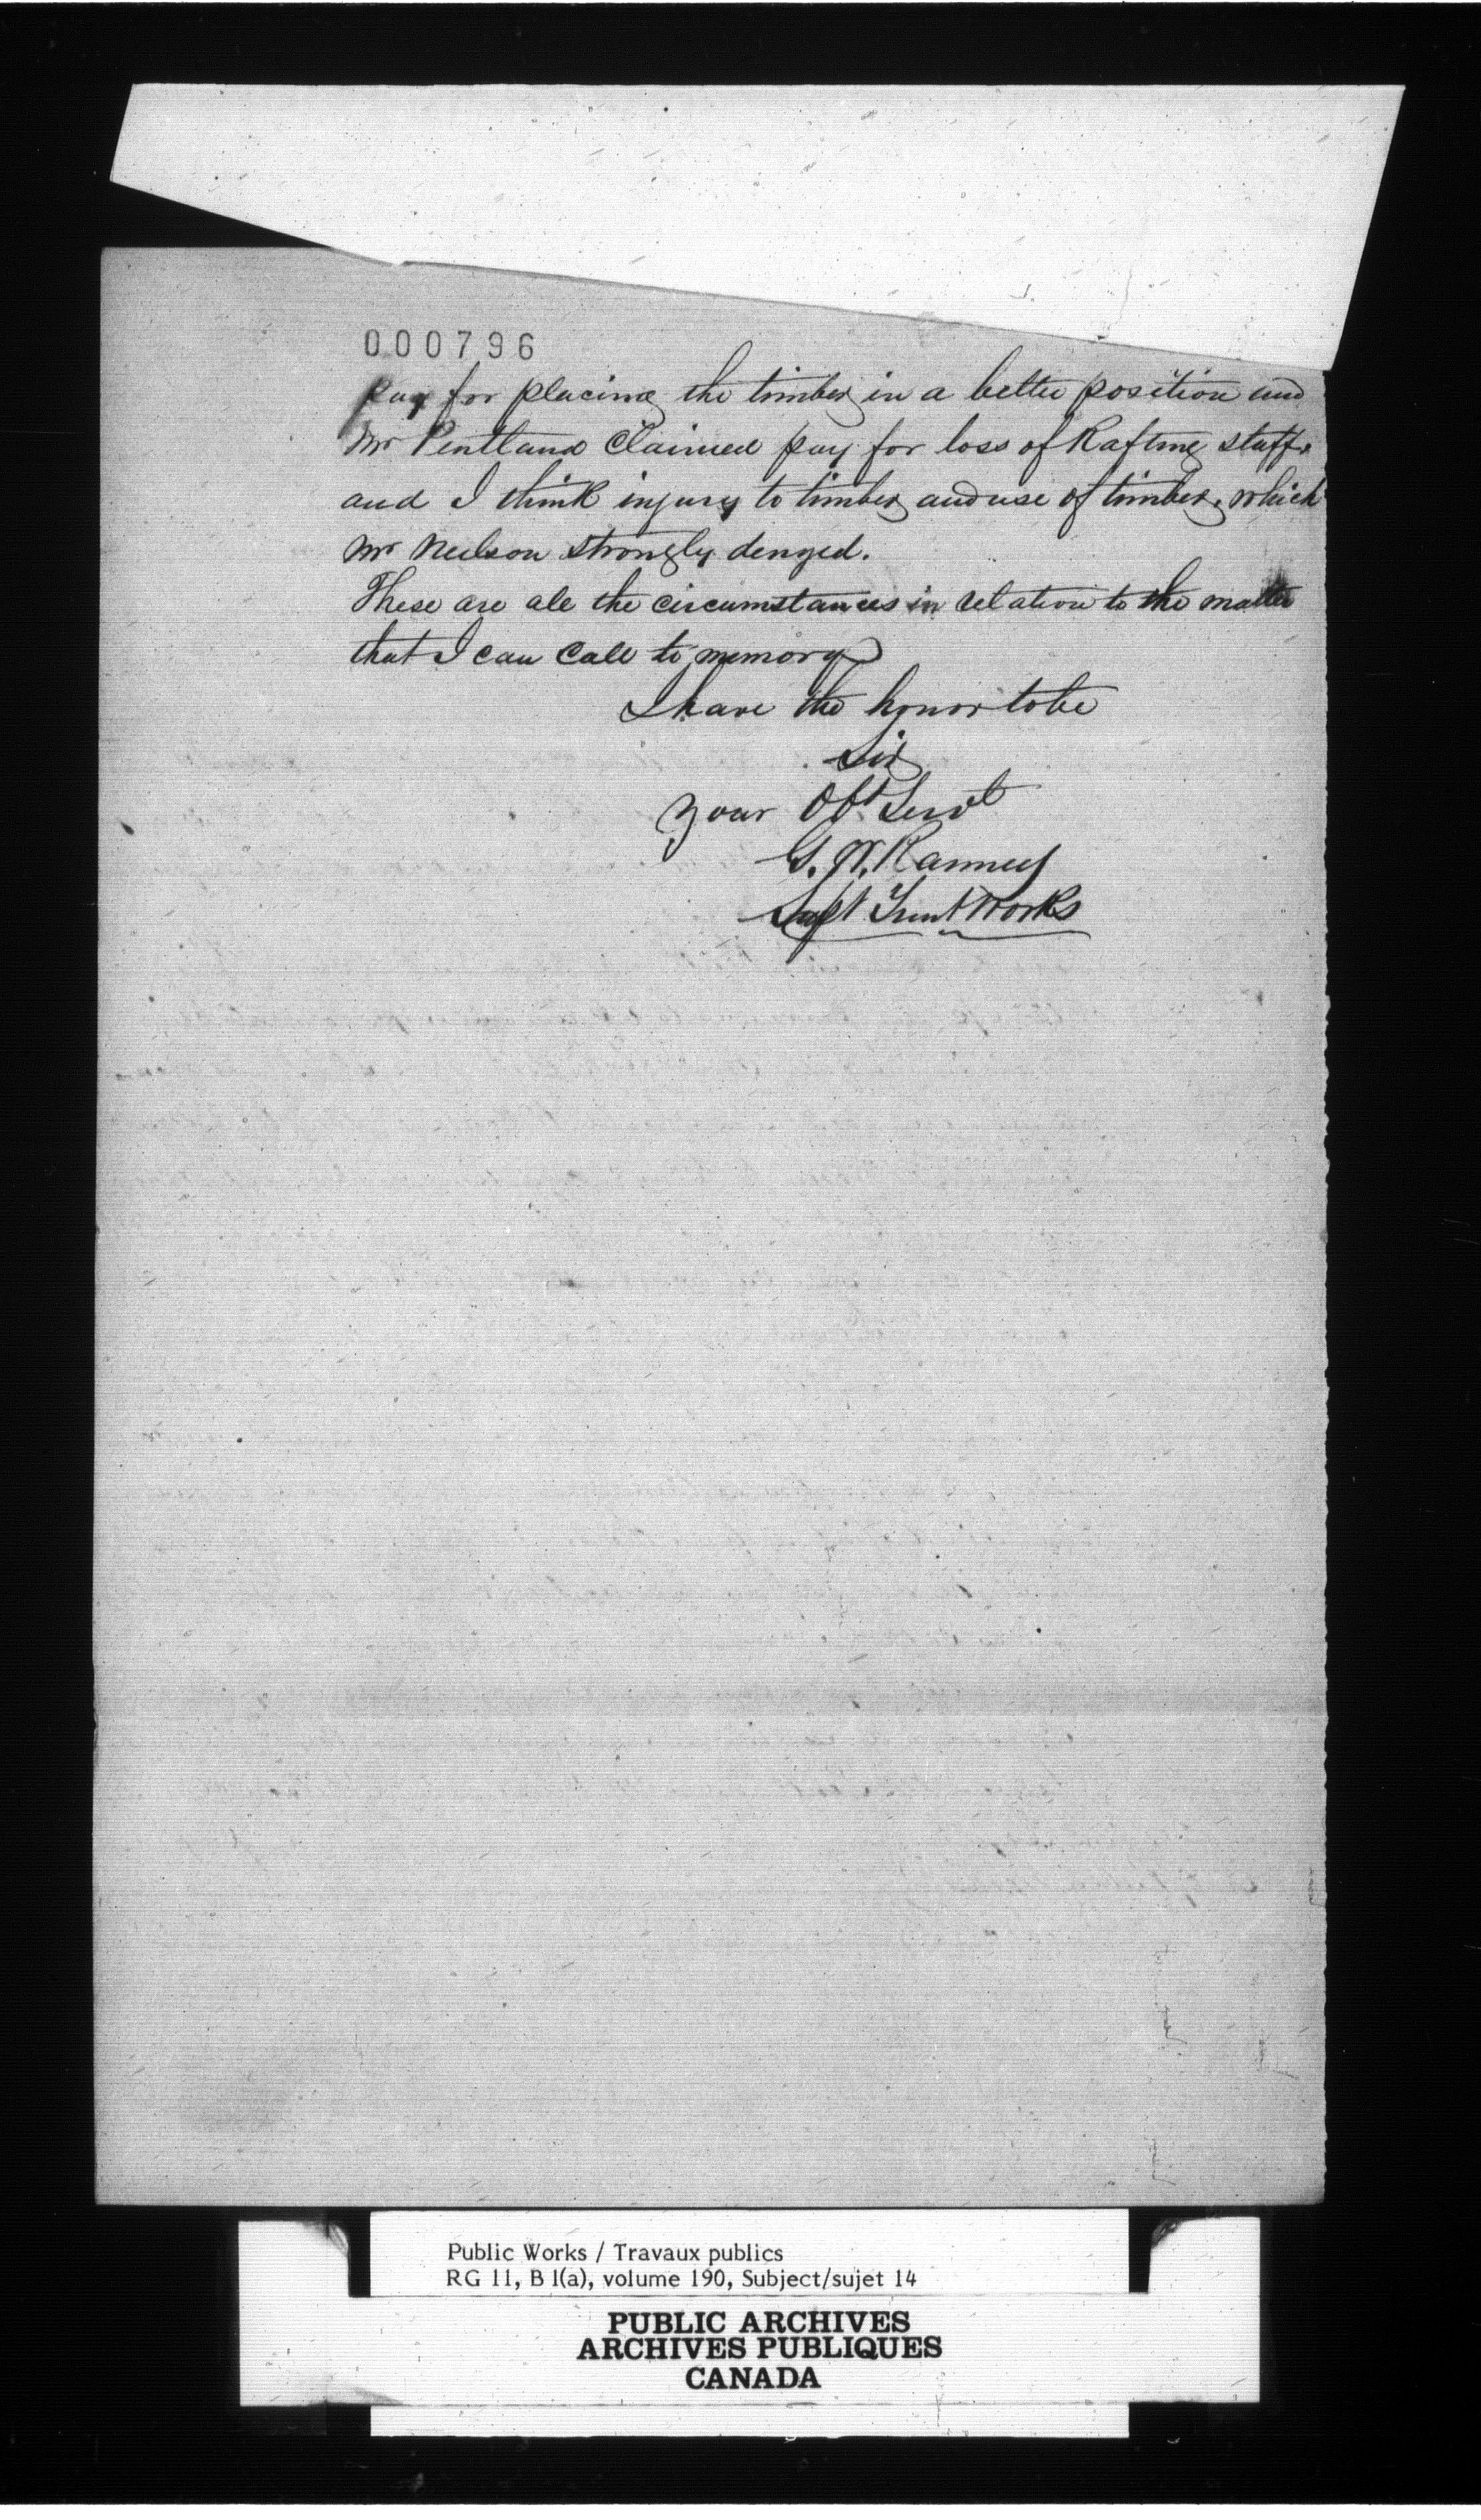 000796
pay for placing the timber in a better position and
Mr Pentland Claimed pay for loss of Rafting stuff,
and I think injury to timber and use of timber, which
Mr Neilson strongly denyed.
These are all the circumstances in relation to the matter
that I can Call to memory
I have the honor to be
Sir
Your Obt Servt
G. W. Ranney
Supt Trent Works
Public Works / Travaux publics
RG 11, B 1(a), volume 190, Subject/sujet 14
PUBLIC ARCHIVES
ARCHIVES PUBLIQUES
CANADA